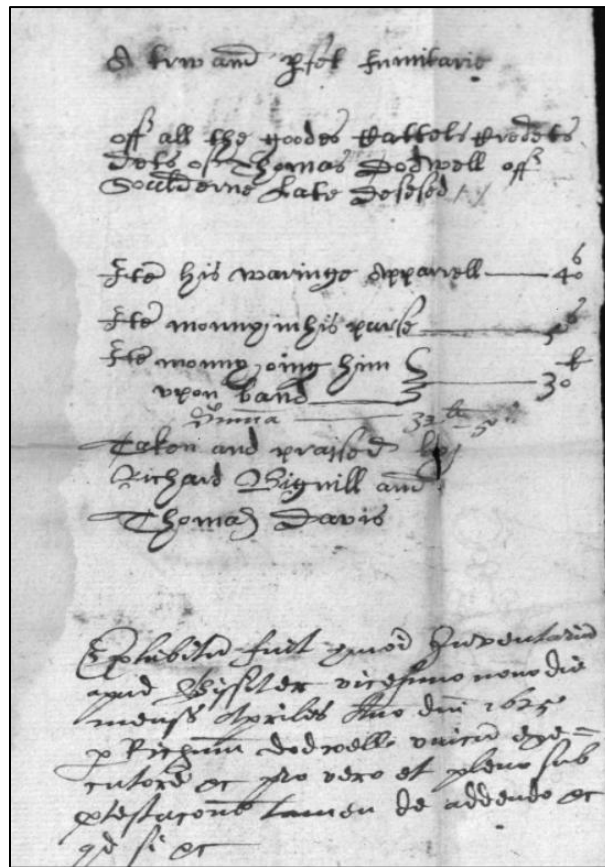 A trw and pfet Inuitarie
off all the goodes Cattels Credets
dets of Thomas Dodwell off
Soulderne Late desesed
Ite his waringe Apparrell — 40s
Ite monny in his purse — 5s
Ite monny oing him
upon band — 30li
Summa — 32li - 5s
Taken and praised by
Richard Bignill and
Thomas Davis
Exhibitu fuit hmoi Inventariu
apud Bysiter vicesimo nono die
menss Aprilis Ano dni 1625
p Richum Dodwell unicu exe=
cutore &c pro vero et pleno sub
ptestacone tamen de addendo &c
qd si &c